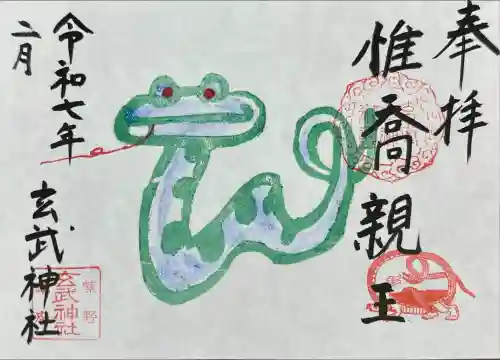 奉拝
惟喬親王
令和七年
二月
玄武神社
紫野
玄武神社